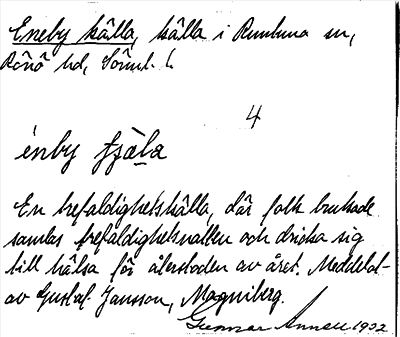 Eneby källa, källa i Runtuna sn,
Rönö hd, Söml. l.
4
énby tjä̀la
En trefaldighetskälla, där folk brukade
samlas trefaldighetsnatten och dricka sig
till hälsa för återstoden av året. Meddelat
av Gustaf Jansson, Magniberg.
Gunnar 1932